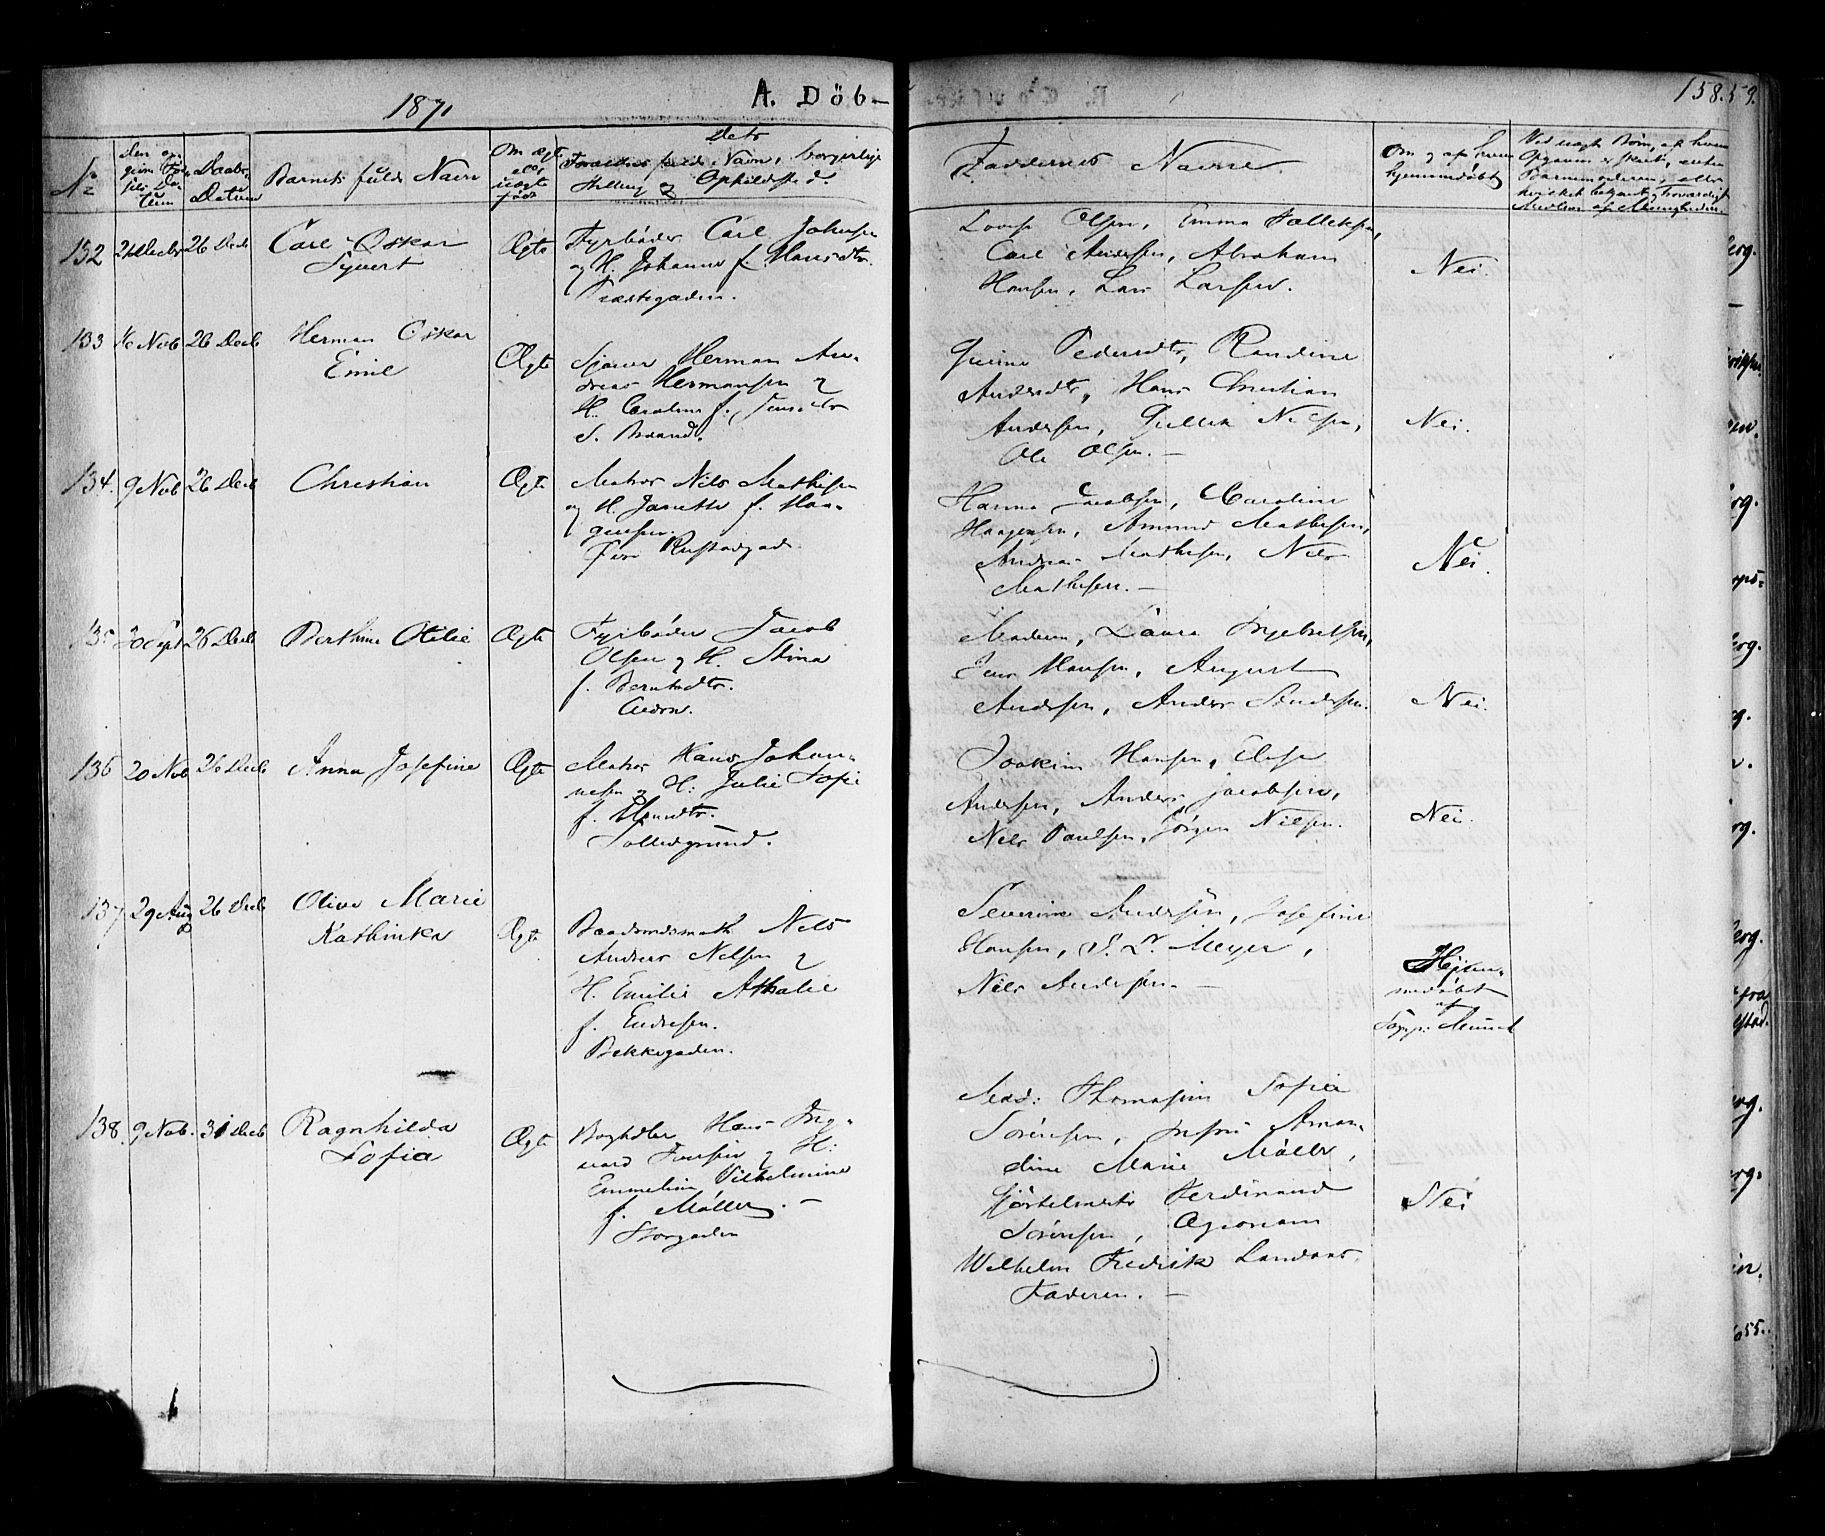 1871
A. Döb-
158.
59.
No
Daabs-
Datum
Barnets fulde Navn
Om ægte
eller
uægte
født
Dets
Forældres fulde Navn, borgerlige
Stilling og Opholdssted.
Faddernes Navne.
Om og af hvem
hjemmedøbt
132
26 Decb
Carl Oskar
Syvert
Ægte
Fyrbøder Carl Johnsen
og H. Johanne f. Hansdtr.
Præstegaden.
Lovise Olsen, Emma Tollefsen,
Carl Andersen, Abraham
Hansen, Lars Larsen.
Nei.
133
16 Nob
26 Decb
Herman Oskar
Emil
Ægte
Sjouer Herman An-
dreas Hermansen og
H. Caroline f. Jensdtr
S. Brand.
Gurine Pedersdtr, Randine
Andersdtr, Hans Christian
Andersen, Gullik Nilsen,
Ole Olsen. —
Nei.
134.
9 Nob
26 Decb
Christian
Ægte
Matros Nils Mathisen
og H. Janette f. Haa-
gensen.
Hanna Jacobsen, Caroline
Haagensen, Amund Mathisen,
Andrea Mathisen, Nils
Mathisen. —
Nei.
135
30 Sept
26 Decb
Berthine Otilie
Ægte
Fyrbøder Jacob
Olsen og H. Stina
f. Berntsdtr.
Moderen, Laura Ingebretsen,
Jens Hansen, August
Andersen, Anders Andersen.
Nei.
136
20 Nob
26 Decb
Anna Josefine
Ægte
Matros Hans Johan-
nesen og H. Julie Sofie
f.
Tollersgrund.
Joakim Hansen, Elise
Andersen, Anders Jacobsen,
Nils Paulsen, Jörgen Nilsen.
Nei.
137
29 Aug
26 Decb
Olive Marie
Kathinka
Ægte
Baadsmdsmath Nils
Andreas Nilsen og
H. Emilie Athalie
f. Endresen.
Bekkegaden.
Severine Andersen, Josefine
Hansen, S. L. Meyer,
Nils Andersen. —
Hjem-
medøbt
af
138.
9 Nob.
31 Decb
Ragnhilda
Sofia
Ægte
Boghdler Hans Ing-
vard Jensen og H:
Emmeline Vilhelmine
f. Møller. —
Storgaden
Mad: Thomasine Sofia
Sörensen, Jnfru Aman-
dine Marie Møller,
Gjörtelmstr Ferdinand
Sörensen, Agronom
Wilhelm Fredrik Landaas.
Faderen. —
Nei